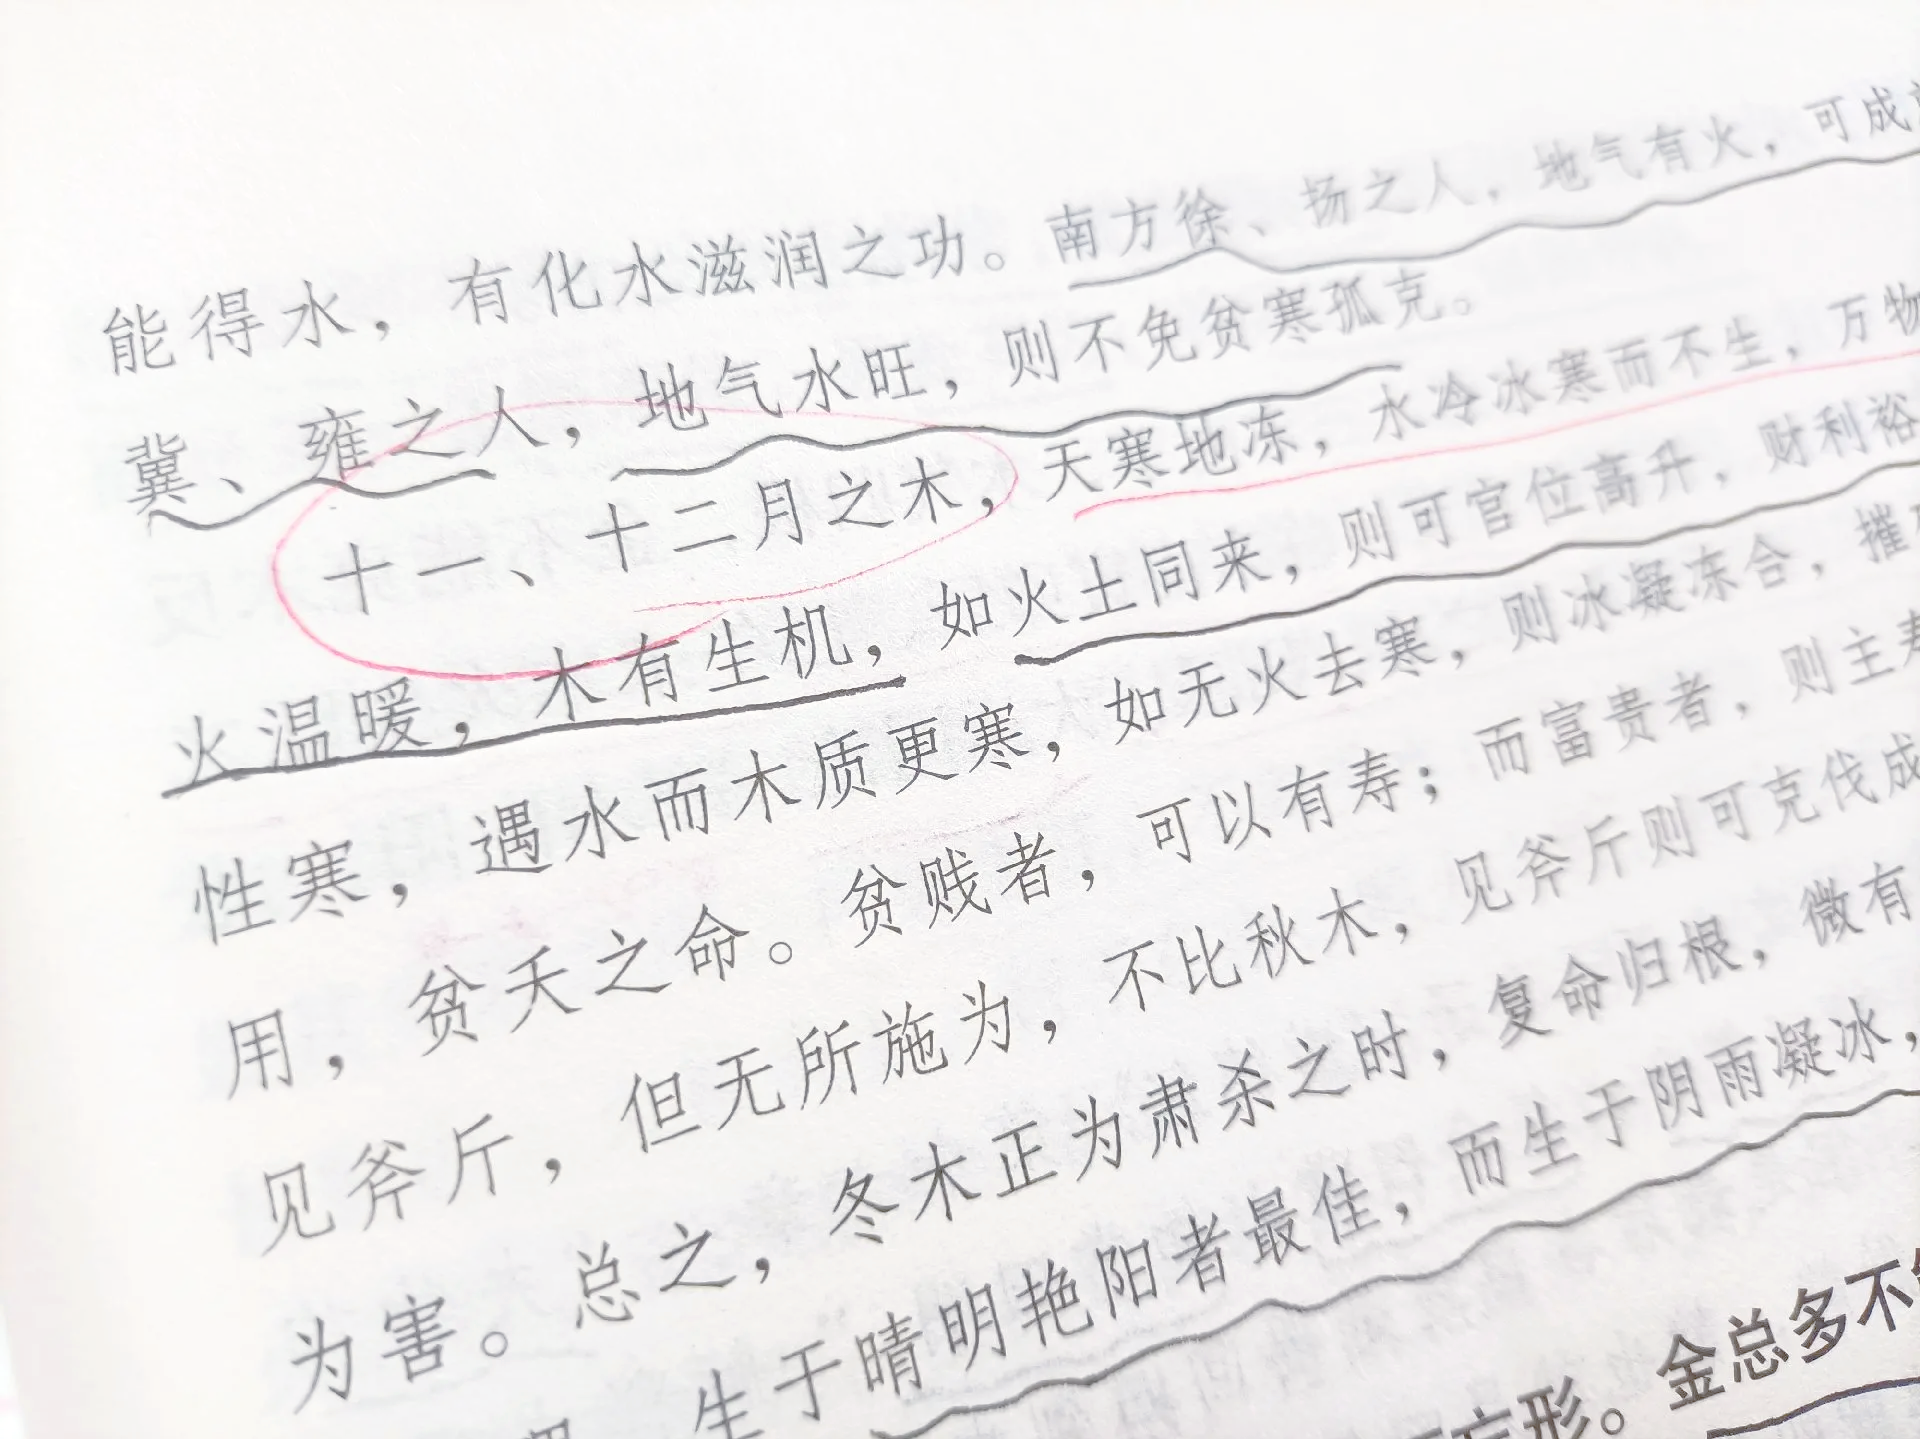 能得水，有化水滋润之功。南方徐、扬之人，地气有火，可成
冀、雍之人，地气水旺，则不免贫寒孤克。
十一、十二月之木，天寒地冻，水冷冰寒而不生，万物
火温暖，木有生机，如火土同来，则可官位高升，财利裕
性寒，遇水而木质更寒，如无火去寒，则冰凝冻合，摧
用，贫夭之命。贫贱者，可以有寿；而富贵者，则主寿
见斧斤，但无所施为，不比秋木，见斧斤则可克伐成
为害。总之，冬木正为肃杀之时，复命归根，微有
生于晴明艳阳者最佳，而生于阴雨凝冰，
方形。金总多不